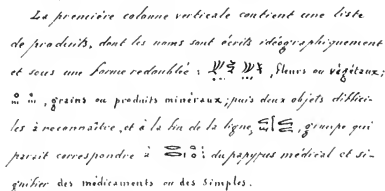 La première colonne verticale contient une liste
de produits, dont les noms sont écrits idéographiquement
et sous une forme redoublée : , fleurs ou végétaux;
, grains ou produits minéraux; puis deux objets diffici-
les à reconnaître, et à la fin de la ligne, , groupe qui
parait correspondre à du papyrus médical et si-
gnifier des médicaments ou des Simples.